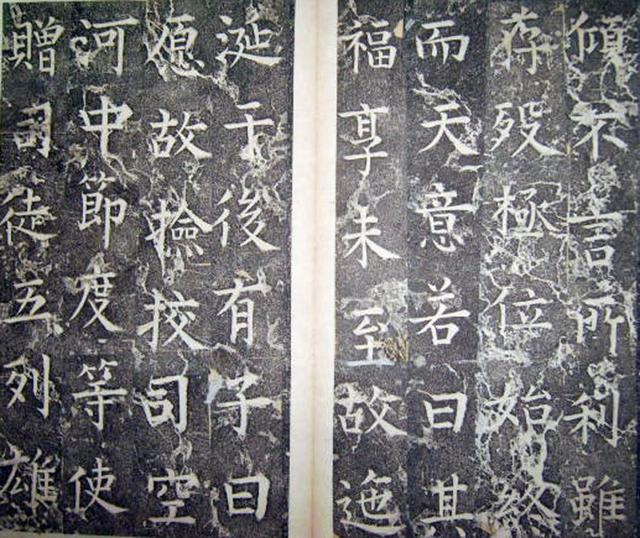 傾不言所利雖
存歿極位始終
而天意若曰其
福享未至故迤
涎于後有子曰
愿故撿挍司空
河中節度等使
贈司徒五列雄